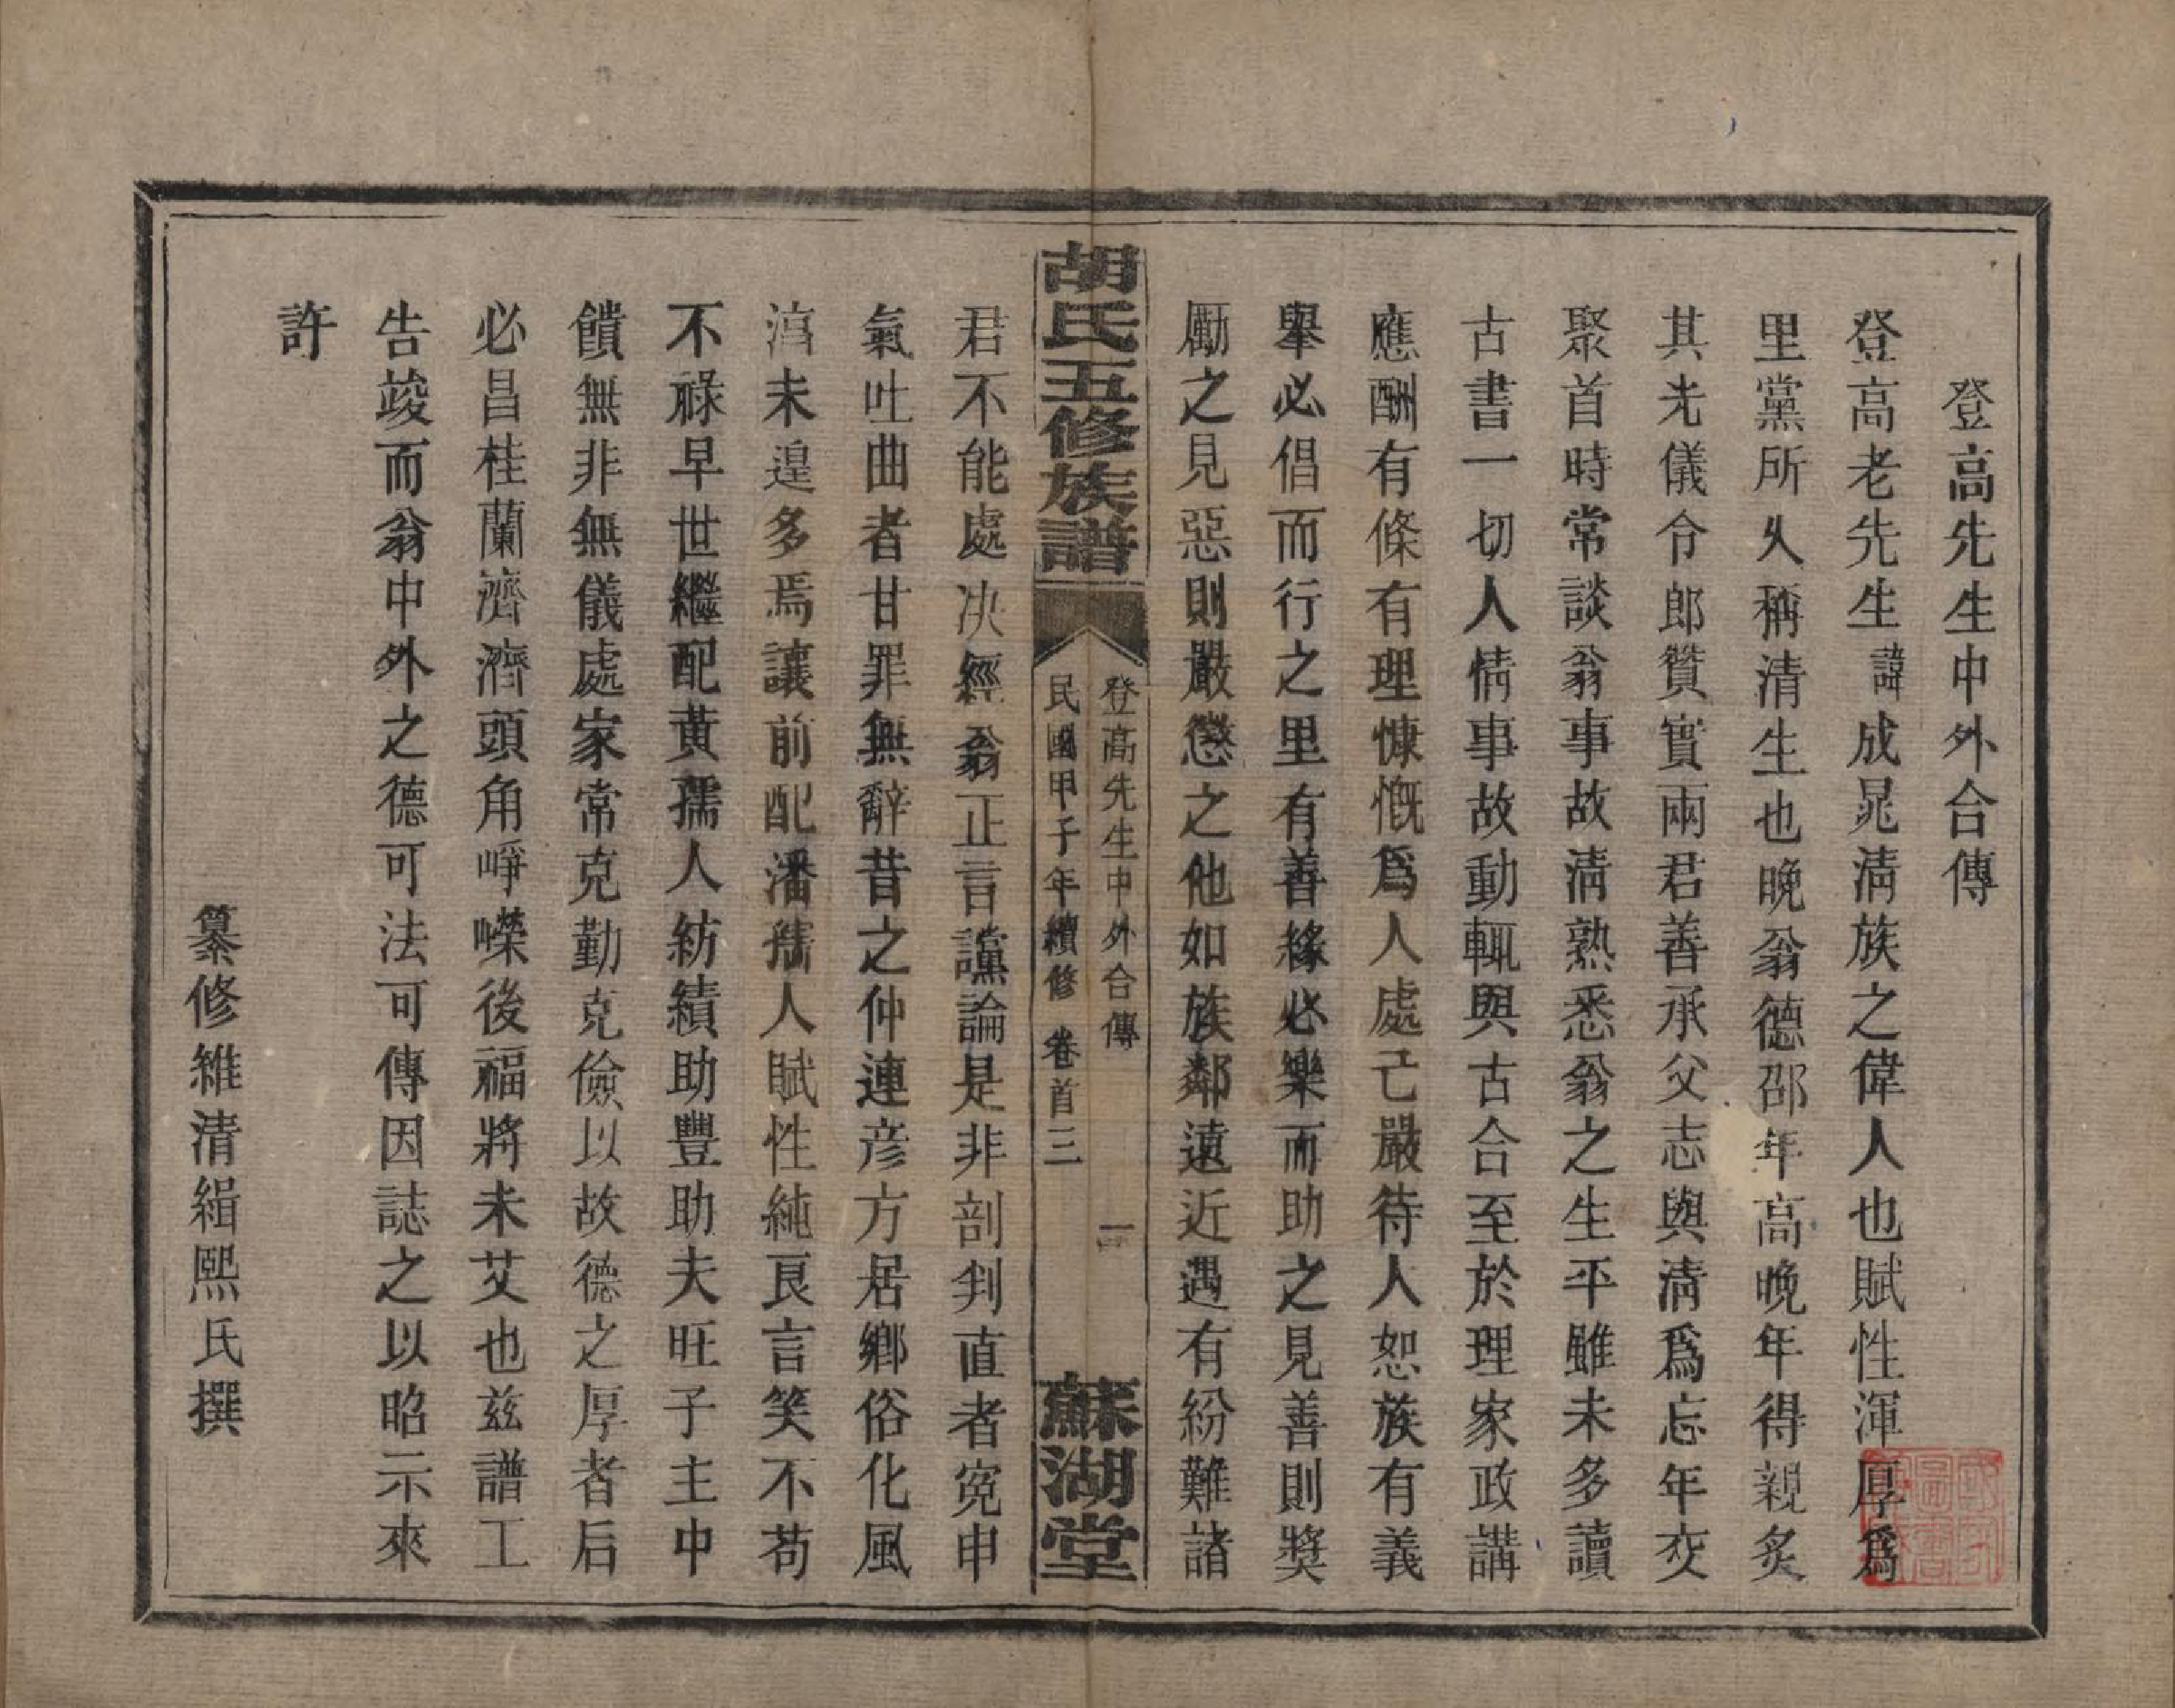 登高先生中外合傳
登高老先生諱成晁淸族之偉人也賦性渾厚爲
里黨所久稱淸生也晚翁德邵年高晚年得親炙
其光儀令郎贊實兩君善承父志與淸爲忘年交
聚首時常談翁事故淸熟悉翁之生平雖未多讀
古書一切人情事故動輒與古合至於理家政講
應酬有條有理慷慨爲人處己嚴待人恕族有義
舉必倡而行之里有善緣必樂而助之見善則獎
勵之見惡則嚴懲之他如族鄰遠近遇有紛難諸
胡氏五修族譜
登高先生中外合傳
民國甲子年續修 卷首三
蘇湖堂
君不能處决經翁正言讜論是非剖判直者寃申
氣吐曲者甘罪無辭昔之仲連彦方居鄉俗化風
淳未遑多焉讓前配潘孺人賦性純良言笑不苟
不祿早世繼配黃孺人紡績助豐助夫旺子主中
饋無非無儀處家常克勤克儉以故德之厚者后
必昌桂蘭濟濟頭角崢嶸後福將未艾也兹譜工
告竣而翁中外之德可法可傳因誌之以昭示來
許
纂修維淸緝熙氏撰